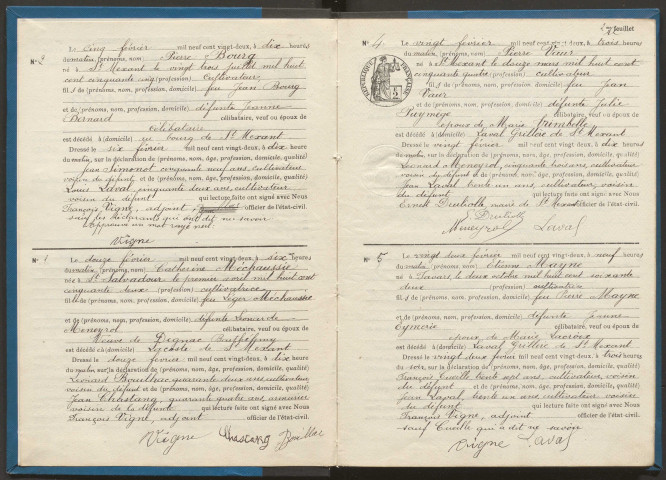 Nº 2
Le cinq février mil neuf cent vingt-deux, à dix heures
du matin, (prénoms, nom) Pierre Bourg
né à St Mexant le vingt trois juillet mil huit
cent cinquante cinq (profession) cultivateur
fils de (prénoms, nom, profession, domicile) feu Jean Bourg
et de (prénoms, nom, profession, domicile) défunte Jeanne
Bernard célibataire, veuf ou époux de
célibataire
est décédé à (domicile) au bourg de St Mexant
Dressé le six février mil neuf cent vingt-deux, à dix heures
du matin, sur la déclaration de (prénoms, nom, âge, profession, domicile, qualité)
Jean Simonot cinquante neuf ans cultivateur
voisin du defunt et de (prénoms, nom, âge, profession, domicile, qualité)
Louis Laval, cinquante deux ans cultivateur
voisin du defunt qui lecture faite ont signé avec Nous
François Vigne, adjoint officier de l'état-civil.
sauf les déclarants qui ont dit ne savoir
Approuvé un mot rayé nul
Vigne
Le douze février mil neuf cent vingt-deux, à six heures
du matin, (prénoms, nom) Catherine Méchaussie
née à St Salvadour le premier avril mil huit cent
cinquante deux (profession) cultivatrice
fille de (prénoms, nom, profession, domicile) feu Léger Méchaussie
et de (prénoms, nom, profession, domicile) défunte
Meneyrol célibataire, veuf ou époux de
Veuve de Dignac
est décédée à (domicile) Lacoste de St Mexant
Dressé le douze février mil neuf cent vingt-deux, à dix heures
du matin sur la déclaration de (prénoms, nom, âge, profession, domicile, qualité)
Léonard Bouilhac quarante deux ans cultivateur
voisin du défunt et de (prénoms, nom, âge, profession, domicile, qualité)
Jean Chastang, quarante quatre ans
voisin de la défunte qui lecture faite ont signé avec Nous
François Vigne, adjoint officier de l'état-civil.
Vigne Chastang Bouilhac
feuillet
Nº 4
Le vingt février mil neuf cent vingt-deux, à trois heures
du matin, (prénoms, nom) Pierre Vaur
né à St Mexant le douze mars mil huit cent
cinquante quatre (profession) cultivateur
fils de (prénoms, nom, profession, domicile) feu Jean
Vaur
et de (prénoms, nom, profession, domicile) défunte Julie
Puymège célibataire, veuf ou époux de
époux de Marie
est décédé à (domicile) Laval Grillère de St Mexant
Dressé le vingt février mil neuf cent vingt-deux, à dix heures
du matin, sur la déclaration de (prénoms, nom, âge, profession, domicile, qualité)
Léonard Meneyrol, cinquante trois ans cultivateur
voisin du défunt et de (prénoms, nom, âge, profession, domicile, qualité)
Jean Laval trente un ans, cultivateur, voisin
du défunt qui lecture faite ont signé avec Nous
Ernest maire de St Mexant officier de l'état-civil.
Meneyrol Laval
Nº 5
Le vingt deux février mil neuf cent vingt-deux, à neuf heures
du matin (prénoms, nom) Etienne Mayne
né à le deux octobre mil huit cent soixante
deux (profession) cultivateur
fils de (prénoms, nom, profession, domicile) feu Pierre Mayne
et de (prénoms, nom, profession, domicile) défunte Jeanne
Eymerie célibataire, veuf ou époux de
époux de Marie Lacroix
est décédé à (domicile) Laval Grillère de St Mexant
Dressé le vingt deux février mil neuf cent vingt-deux, à trois heures
du soir, sur la déclaration de (prénoms, nom, âge, profession, domicile, qualité)
François Cueille trente sept ans cultivateur, voisin
du défunt et de (prénoms, nom, âge, profession, domicile, qualité)
Jean Laval, trente un ans cultivateur voisin
du défunt qui lecture faite ont signé avec Nous
François Vigne, adjoint officier de l'état-civil.
sauf Cueille qui a dit ne savoir
Vigne Laval